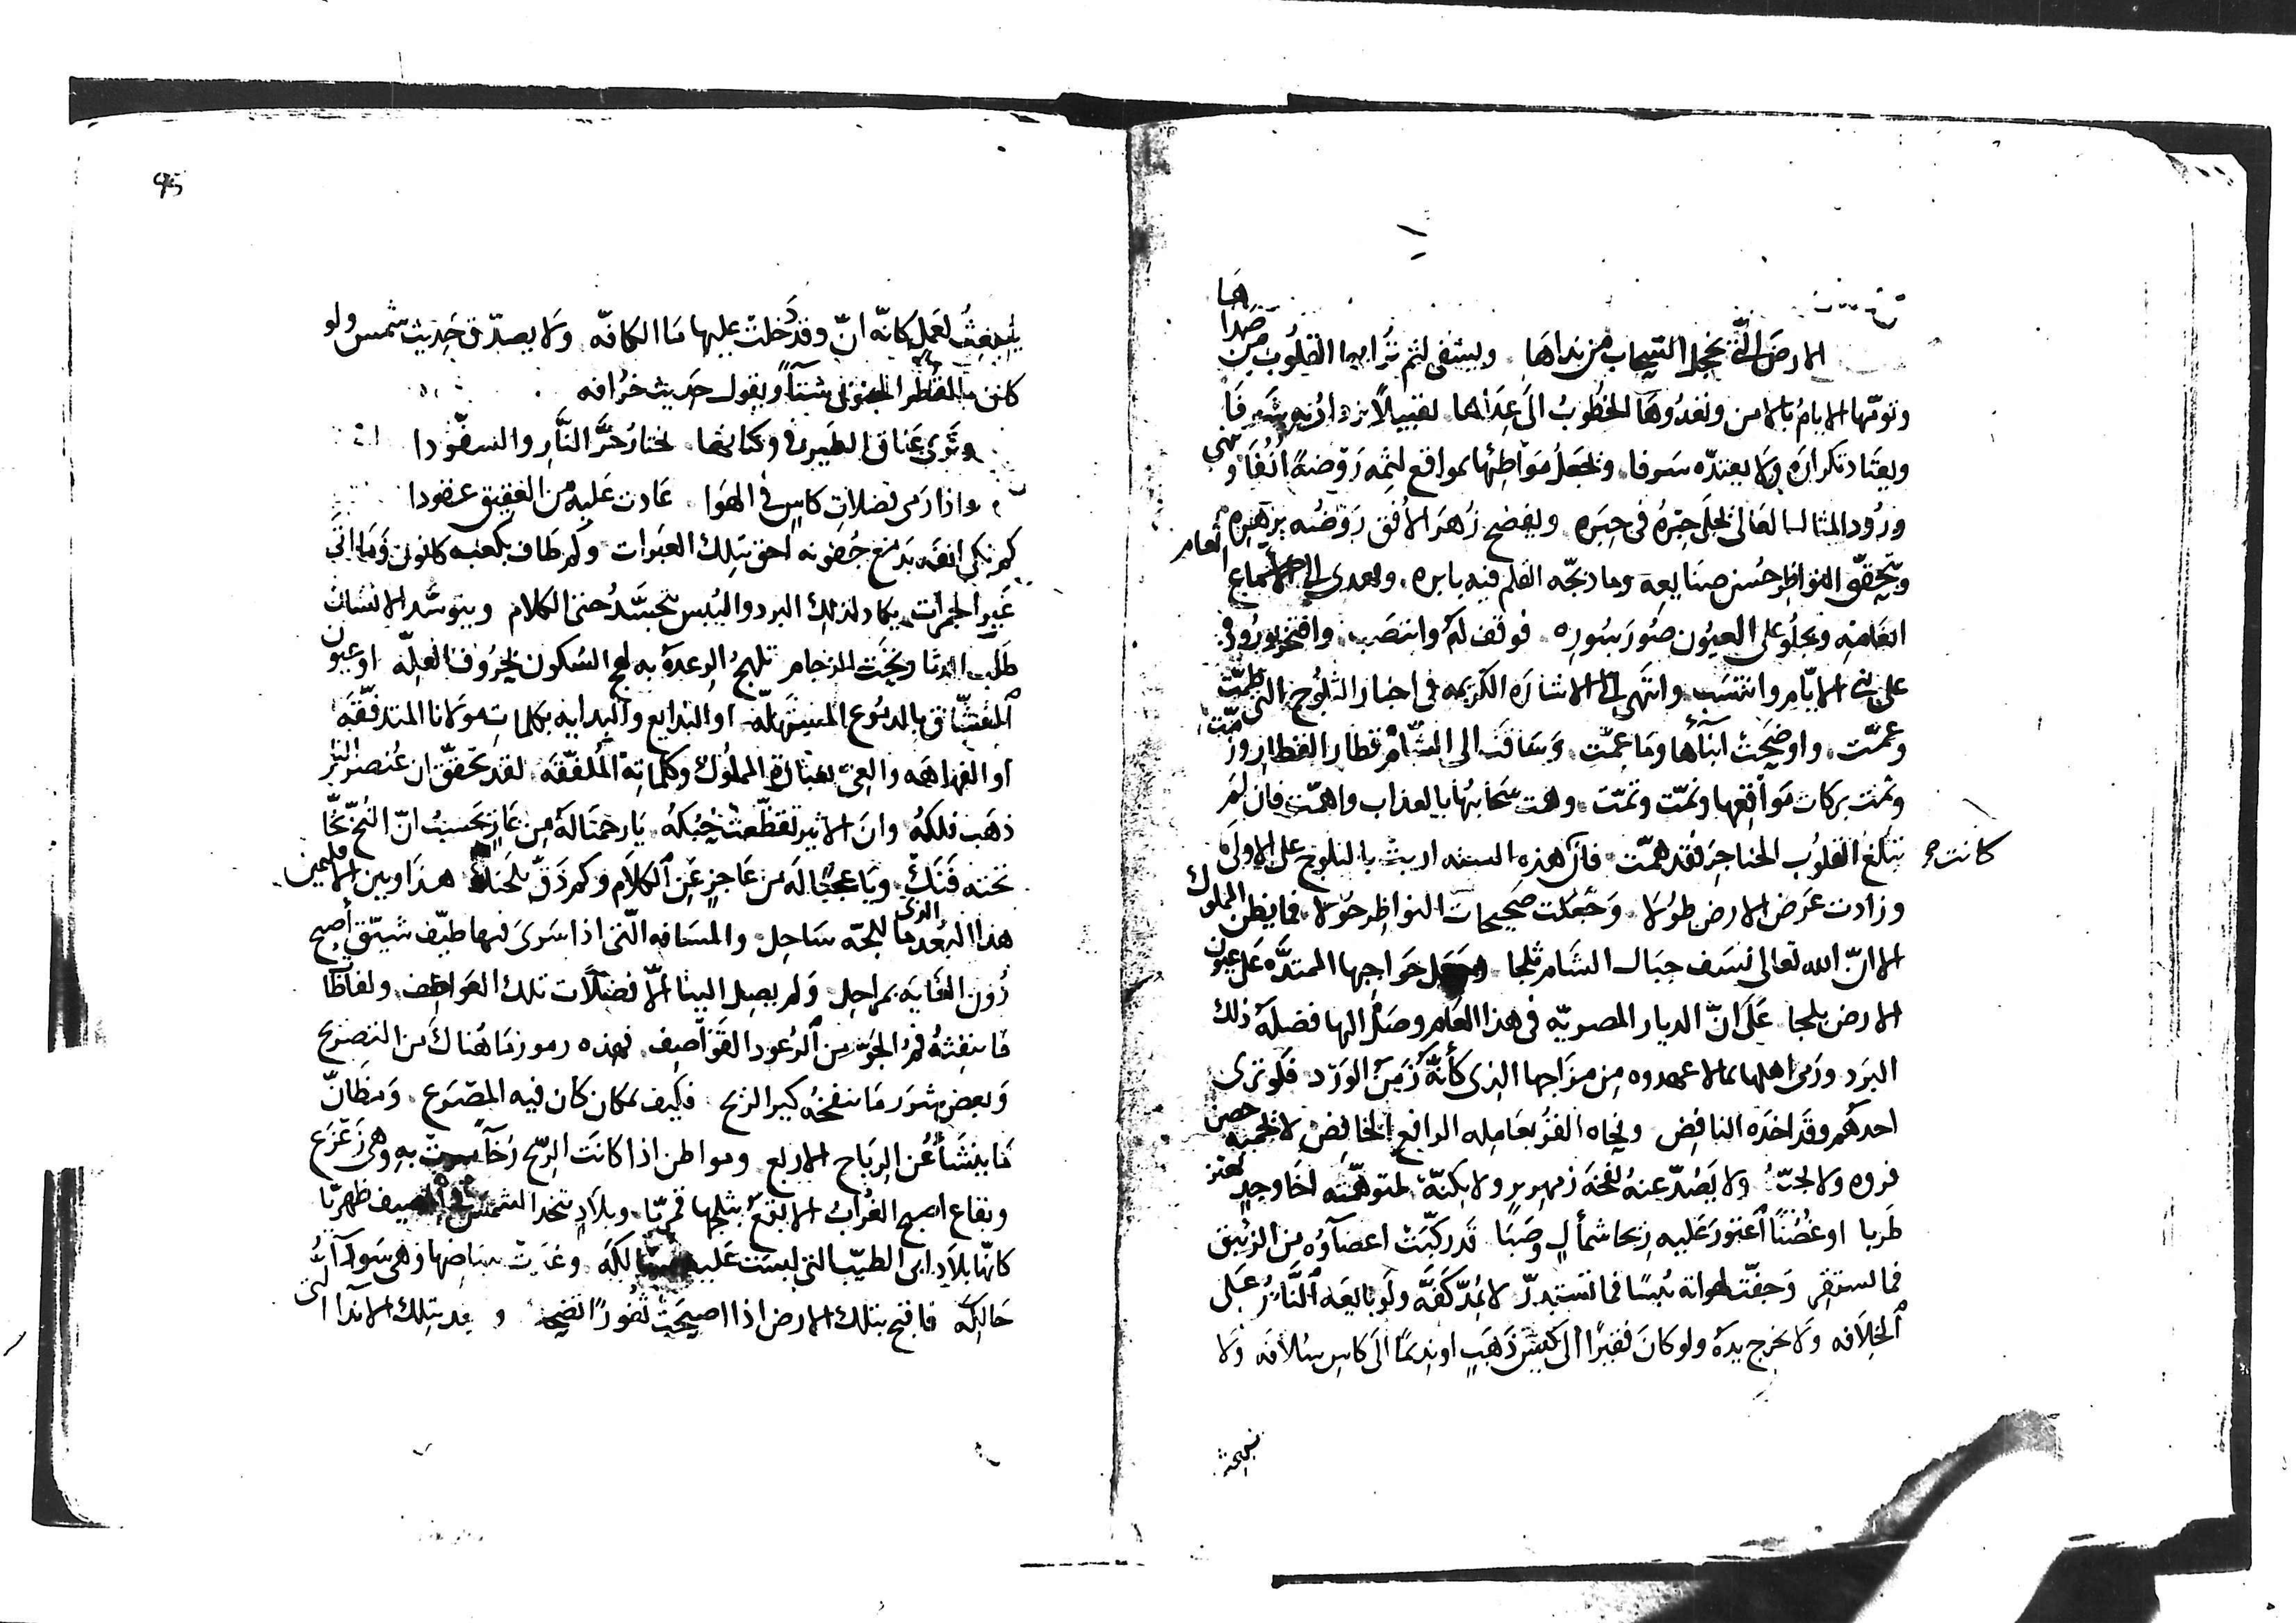 الارض التي يخجل السحاب من نداها ويشفي لثم ترابها القلوب من صداها
وتؤمّها الايام بالامن وتغدو وهَا الخطوبُ الى عِدَاها تقبيلًا يزداد به شرفا
ويعتاد تكراره ولا يعتدّه سرفا وتجعل مواطئها بمواقع لثمه رَوْضةً أُنُفَا وينهي
ورُود المثال العالي يحلى حِبْرُهُ في حِبَره ويفضح زُهرَ الأفق رَوْضُه بزهره
ويتحقق النواظر حُسن صنايعه وما دبجه القلم فيه بابره ويهدي الى الاسماع انعام
انعامه ويجلو على العيون صُوَر سُوَره فوقف لهُ وانتصَب وافتخر بوروده
على بني الايّام وانتسَب وانتهى الى الاشارة الكريمه في اخبار الثلوج التي طمّت
وعمّت واوضحَت انبآءُها وما عمّت وسَاقت الى الشأم قطار القطار وزمّت
وتمت بركات مَواقعها ونمّت وتمّت وهمت سَحَابتُها بالعذاب واهمّت فان لم
تبلغ القلوُب الحناجرَ فقد همّت فانّ هذه السنه اربت بالثلوج على الاولى كانت
وزادت عَرض الارض طولا وَجَعَلت صَحيحات النواظر حُولا فما يظن المملوك
الا انّ الله تعالى نسَف جبَال الشام ثلجا وجعل حَواجبها الممتدّه على عيون
الارض بلجا عَلَى انّ الديار المصريّه في هذا العام وصَل اليها فضلة ذلك
البرَد ورَمى اهلها بما لا عهدوه مِن مزَاجها الذي كأنّه زَمَن الوَرد فلو ترى
احدهُم وقد اخذه النافِض ونحاه القرّ بعَامله الرافع الخَافِض لا تحميه حصن
فروه ولا لجّت ولا يَصُدّ عنهُ لفحَة زمهرير ولا بكنّة لتوهمّته اخَا وجدٍ يهتز
طَربا او غُصُنًا اعتور عَليه ريحا شمألٍ وصَبَا قد ركّبَت اعضاؤُه من الزئبق
فما تستقر وَجفّت لهواته يُبسًا فما تستبدرّ لا يمُدّ كَفَّه ولَو بايعَه النَّاسُ عَلى
الخلافه وَلا يخرج يدَهُ ولو كانَ فقيرًا الى كيسِ ذَهَبٍ او نديمًا الى كاس سُلافَه ولا
ينبعث
95
ينبعِث لعَمل كانّه انّ وقد دَخلت عليها مَا الكافّه وَلا يصدّق حَدِيث شمس ولو
كانت بالقُطر الجنوبى شتآءً ويقول حَديث خُرافه
وتَرى عتاق الطير في وكناتها تختارُ حَرَّ النَّارِ والسفّودا
واذا رَمى بفضلات كاسٍ في الهوا عَادت عَليه من العقيق عقودا
كم تبكي انفه بدَمع جُفونه احق بتلك العبَرات وكم طَاف بكعبه كانون وَما اتى
غَير الجمرات يكاد لذلك البرد واليُبس يتجسّدُ حتى الكلام ويتوسَّد الانسَان
طَلب الدثار ويخَت الزحام تلهج الرعدَة به لهج السُكون بحُروف العِلّه او عيون
العشّاق بالدمُوع المستهلّه او البَدايع والبدايه بكلمات مولانا المتدفّقَه
او الفهاهه والعِي بعبارة المملُوك وكلماته المُلفّقَه لقد تحقق ان عُنصر النار
ذهَب فلكهُ وان الاثير تقطّعت حُبُكهُ يَا رحمتا لهُ من عَارٍ يحسبُ انّ الثج تخّا
تحته فَنَكٌ ويَا عجبًا له مِن عَاجزٍ عن الكلام وكم دَقّ بلحَنك هذا وبين الاقليمين
هذا البُعد الذي مَا للجّه سَاحِل والمسَافه الّتي اذا سَرَى فيها طيف شيّق أصبح
دُون الغايَه بمراحِل وَلم يصِل الينا الّا فضَلَات تلك العَواصِف ولفاظَات
مَا ينفِثهُ فمُ الجوّ مِن الرعود القَوَاصِف فهذه رموز مَا هُناك مِن التصريح
وَبعض شَرَر مَا ينفخهُ كير الريح فكيف بمكان كان فيه المصْرَع وَمظَانّ
مَا ينشَأ عن الرياح الاربع ومواطن اذا كانت الرّيح رُخآءً سرت به وهي زَعْزَع
وبقاع اصبح الغُرابُ الابقع بثلجها قمريّا وبلادٍ تتخذ الشمس في الصيف ظهريّا
كانّها بلاد ابي الطيّب التي لبست عَليه مسَالكَه وغدَت ببياضِها وهي سَودآء
حَالكَه فاقبح بتلك الارض اذا اصبحَت ثغورًا تضحك و بتلك الاندا التي